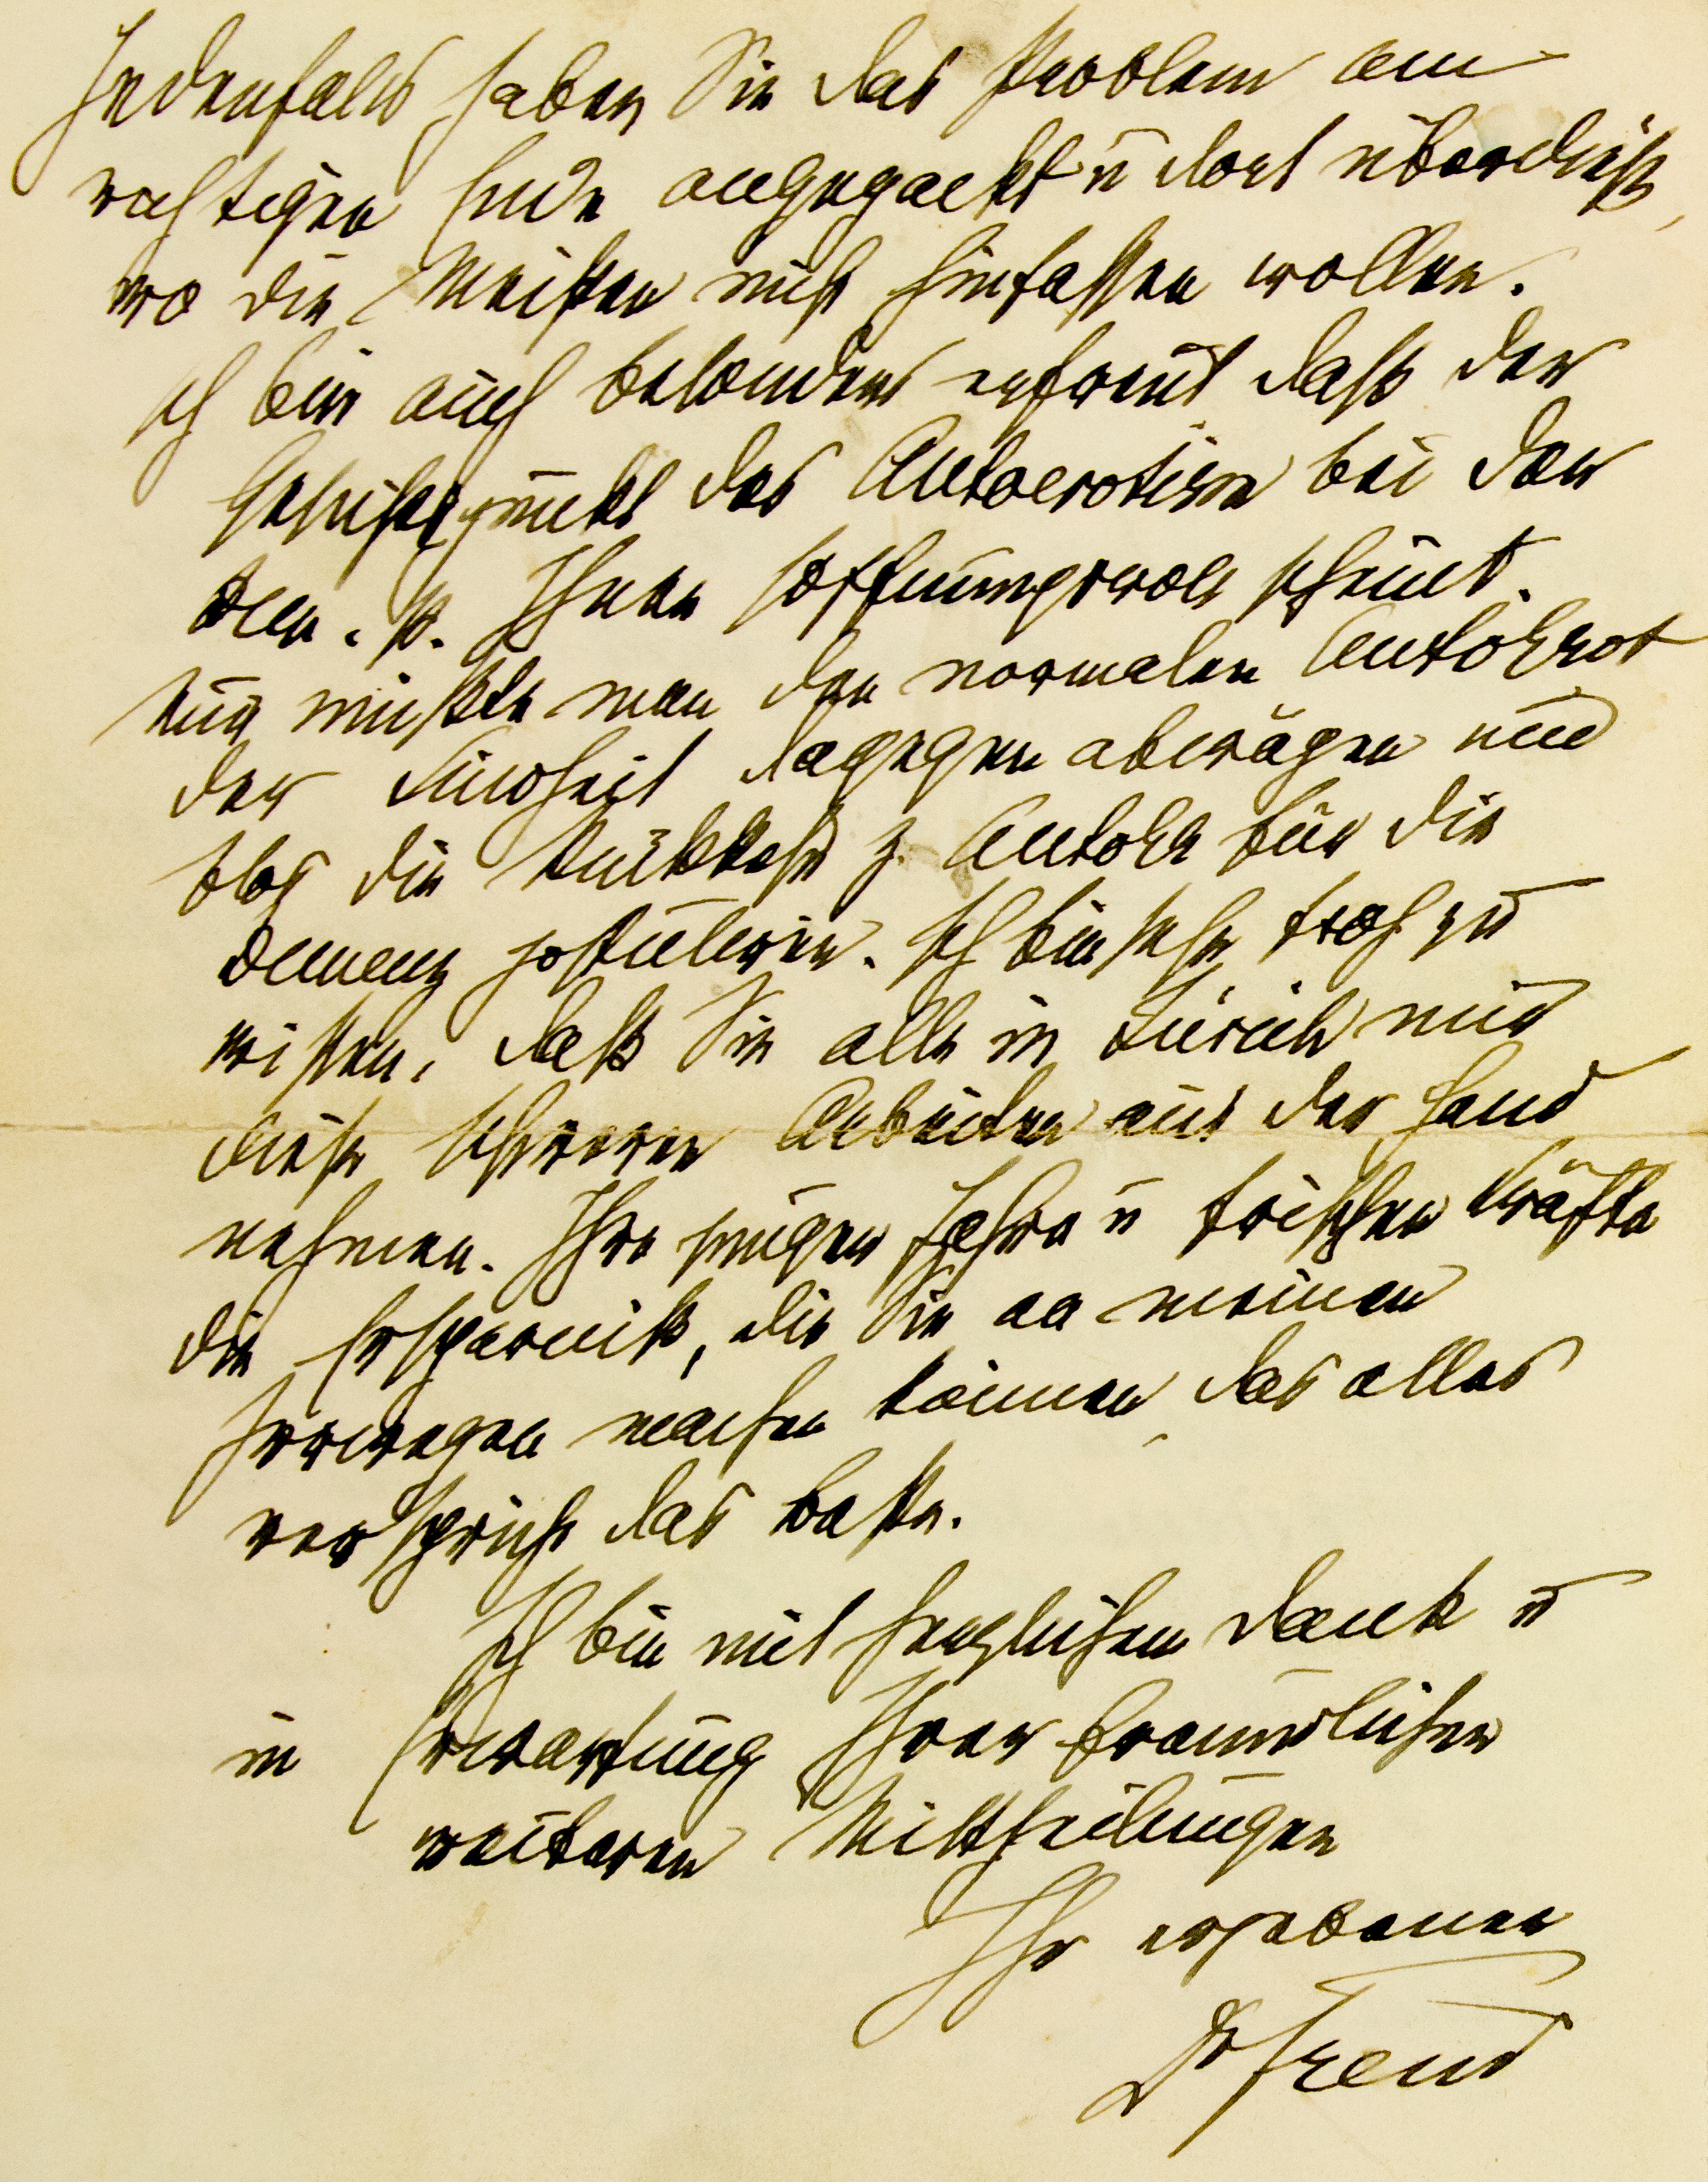 Jedenfalls haben Sie das Problem am
richtigen Ende angepackt u dort überdies,
wo die Meisten nicht hinfassen wollen.
Ich bin auch besonders erfreut daß der
Gesichtspunkt des Autoerotism bei der
Dem. p. Ihnen hoffnungsvoll scheint.
Nur müßte man den normalen AutoErot
der Kindheit dagegen abwägen und
blos die Rückkehr z. AutoEr für die
Demenz postuliren. Ich bin sehr froh zu
wissen, daß Sie alle in Zürich mir
diese schweren Arbeiten aus der Hand
nehmen. Ihre jungen Jahre u frischen Kräfte
die Ersparniß, die Sie an meinen
Irrwegen machen können das alles
verspricht das Beste.
Ich bin mit herzlichem Dank u
in Erwartung Ihrer freundlichen
weiteren Mittheilungen
Ihr ergebener
Dr Freud